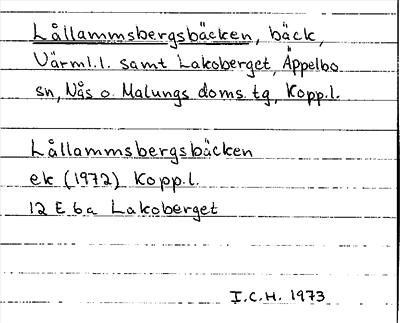 Lållammsbergsbäcken, bäck,
Värml.l. samt Lakoberget, Äppelbo
sn, Nås o. Malungs doms. tg, Kopp.l.
Lållammsbergsbäcken
ek (1972) Kopp.l.
12 E 6a Lakoberget
I.C.H. 1973